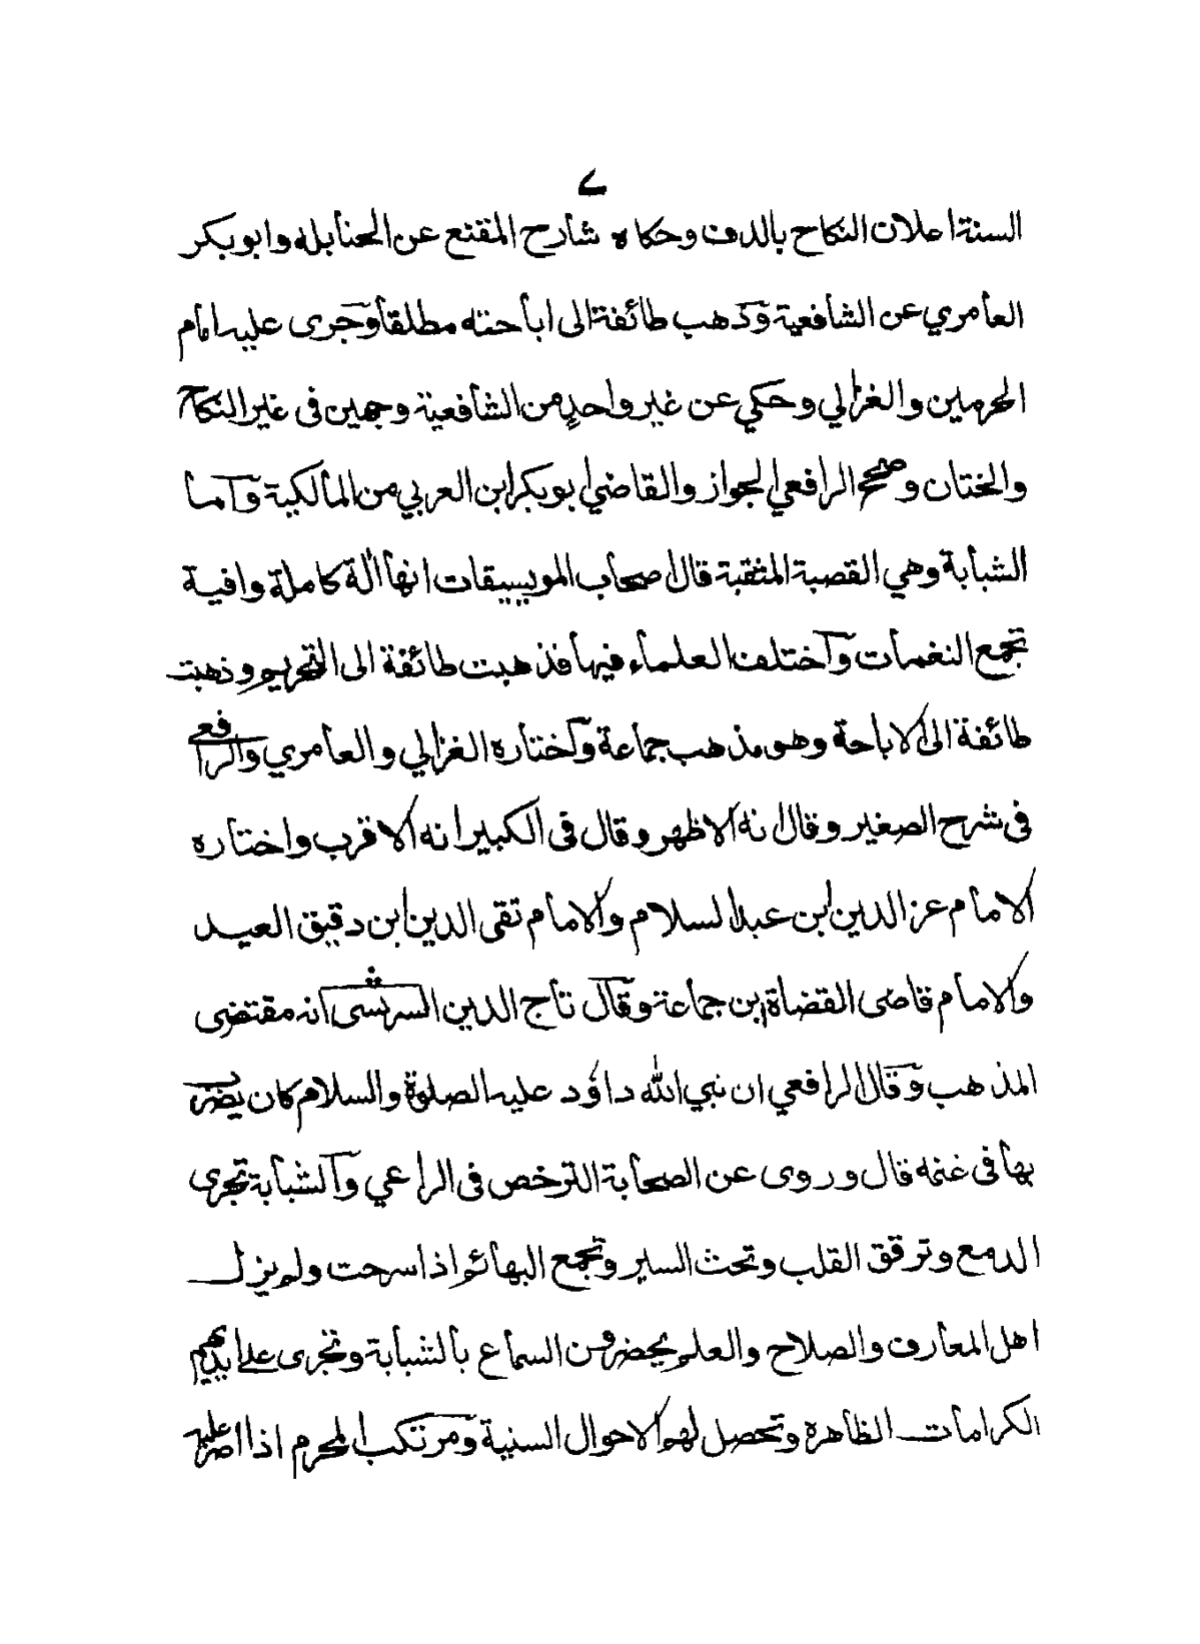 ٧
السنة اعلان النكاح بالدف وحكاه شارح المقنع عن الحنابله وابوبكر
العامري عن الشافعية وذهب طائفة الى اباحته مطلقا وجرى عليه امام
الحرمين والغزالي وحكي عن غير واحد من الشافعية وجهين فى غير النكاح
والختان وصحح الرافعي الجواز والقاضي ابو بكر ابن العربي من المالكية وأما
الشبابة وهي القصبة المثقبة قال اصحاب الموسيقات انها ألة كاملة وافية
تجمع النغمات واختلف العلماء فيها فذهبت طائفة الى التحريم وذهبت
طائفة الى الاباحة وهو مذهب جماعة واختاره الغزالي والعامري والرافعي
فى شرح الصغير وقال انه الاظهر وقال فى الكبير انه الاقرب واختاره
الامام عز الدين ابن عبد السلام والامام تقى الدين ابن دقيق العيد
والامام قاضى القضاة ابن جماعة وقال تاج الدين السرشى انه مقتضى
المذهب وقال الرافعي ان نبي الله داؤد عليه الصلوة والسلام كان يضرب
بها فى غنمه قال وروى عن الصحابة الترخص فى الراعي والشبابة تجرى
الدمع وترقق القلب وتحث السير وتجمع البهائم اذا سرحت ولم يزل
اهل المعارف والصلاح والعلم يحضرون السماع بالشبابة وتجرى على ايديهم
الكرامات الظاهرة وتحصل لهم الاحوال السنية ومرتكب المحرم اذا اصر عليه